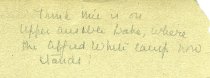 Think this is on
Upper Ausable Lake, where
the Alfred White camp now
stands.